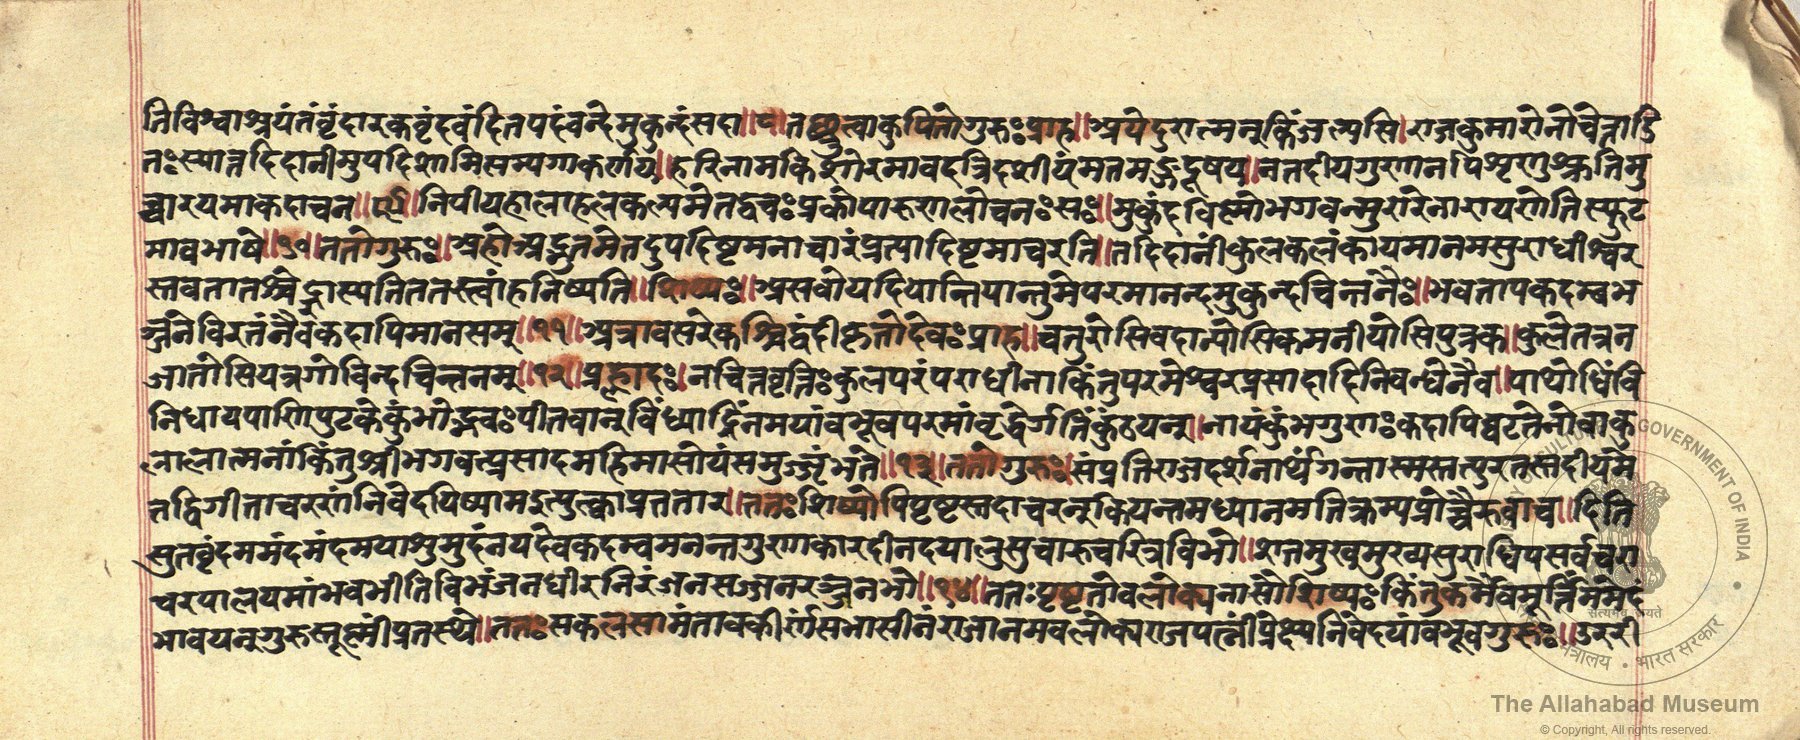 तिविश्वाश्रयंतंवृंदारकवृंदवंदितपदंवन्देमुकुन्दंसदा॥८॥तच्छ्रुत्वाकुपितोगुरुःप्राह॥अयेदुरात्मन्किंजल्पसि।राजकुमारोनोचेत्ताडि
तःस्यात्तदिदानीमुपदिशामिसम्यगाकर्णय॥हरिनामकिशोरमावदत्रिदशीयंमतमङ्गदूषय॥नतदीयगुणानपिशृणुश्रुतिमु
च्चारयमाकदाचन॥९॥निपीयहालाहलकल्पमेतद्वचःप्रकोपारुणलोचनःसः॥मुकुंदविष्णोभगवन्मुरारेनारायणेतिस्फुट
माबभाषे॥१०॥ततोगुरुः॥अहोअद्भुतमेतदुपदिष्टमनाचारंप्रत्यादिष्टमाचरति॥तदिदानींकुलकलंकायमानमसुराधीश्वर
स्तवतातश्चेद्ज्ञास्यतितत्त्वांहनिष्यति॥शिष्यः॥असवोयदियान्तियान्तुमेपरमानन्दमुकुन्दचिन्तनैः॥भवतापकदम्बभ
ञ्जनेविरतंनैवकदापिमानसम्॥११॥अत्रावसरेकश्चिद्वंदीकृतोदेवःप्राह॥चतुरोसिवदान्योसिकमनीयोसिपुत्रक॥कुलेतत्रन
जातोसियत्रगोविन्दचिन्तनम्॥१२॥प्रह्लादः॥नचित्तवृत्तिःकुलपरंपराधीनाकिंतुपरमेश्वरप्रसादादिनिबन्धनैव॥पाथोधिंवि
निधायपाणिपुटकेकुंभोद्भवःपीतवान्विंध्याद्रिंनमयांबभूवपरमांवृद्धेर्गतिंकुंठयन्॥नायंकुंभगुणःकदापिघटतेनोवाकु
लालात्मनांकिंतुश्रीभगवत्प्रसादमहिमासोयंसमुज्जृंभते॥१३॥ततोगुरुः॥संप्रतिराजदर्शनार्थंगन्तास्मस्तत्पुरतस्त्वदीयंमे
तद्विगीताचरणंनिवेदयिष्यामइत्युत्क्वाप्रत्ततार॥ततःशिष्योपिपृष्टस्तदाचरन्कियन्तमध्वानमतिक्रम्यप्रोच्चैरुवाच॥दिति
सुतवृंदममंदमंदमयाशुमुदंनयदेवकदम्बमनन्तगुणाकारदीनदयालुसुचारुचरित्रविभो॥शतमुखमुख्यसुराधिपसर्वचरा
चरपालयमांभवभीतिविभंजनधीरनिरंजनसज्जनरञ्जनभो॥१४॥ततःपृष्ठतोवलोक्यनासौशिष्यःकिंतुकर्मैवमूर्तिमेमेदं
भावयन्गुरुस्तूष्णींप्रतस्थे॥ततःसकलसामंतावकीर्णसभासीनंराजानमवलोक्यराजपत्नींप्रेक्ष्यनिवेदयांबभूवगुरुः॥उररी
The Allahabad Museum
© Copyright, All rights reserved.